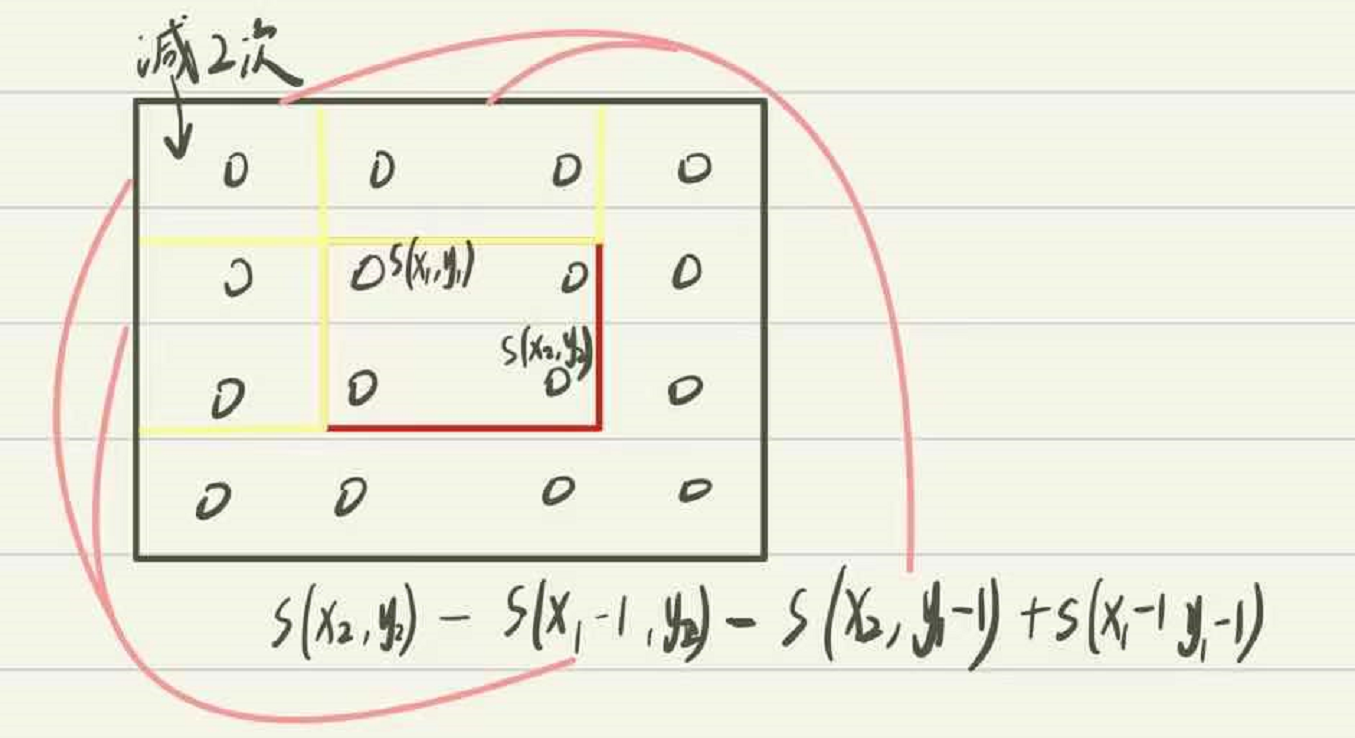 减2次
0 0 0 0
0 0 S(x₁,y₁) 0 0
S(x₂,y₂)
0 0 0 0
0 0 0 0
S(x₂,y₂) - S(x₁-1,y₂) - S(x₂,y₁-1) + S(x₁-1 y₁-1)